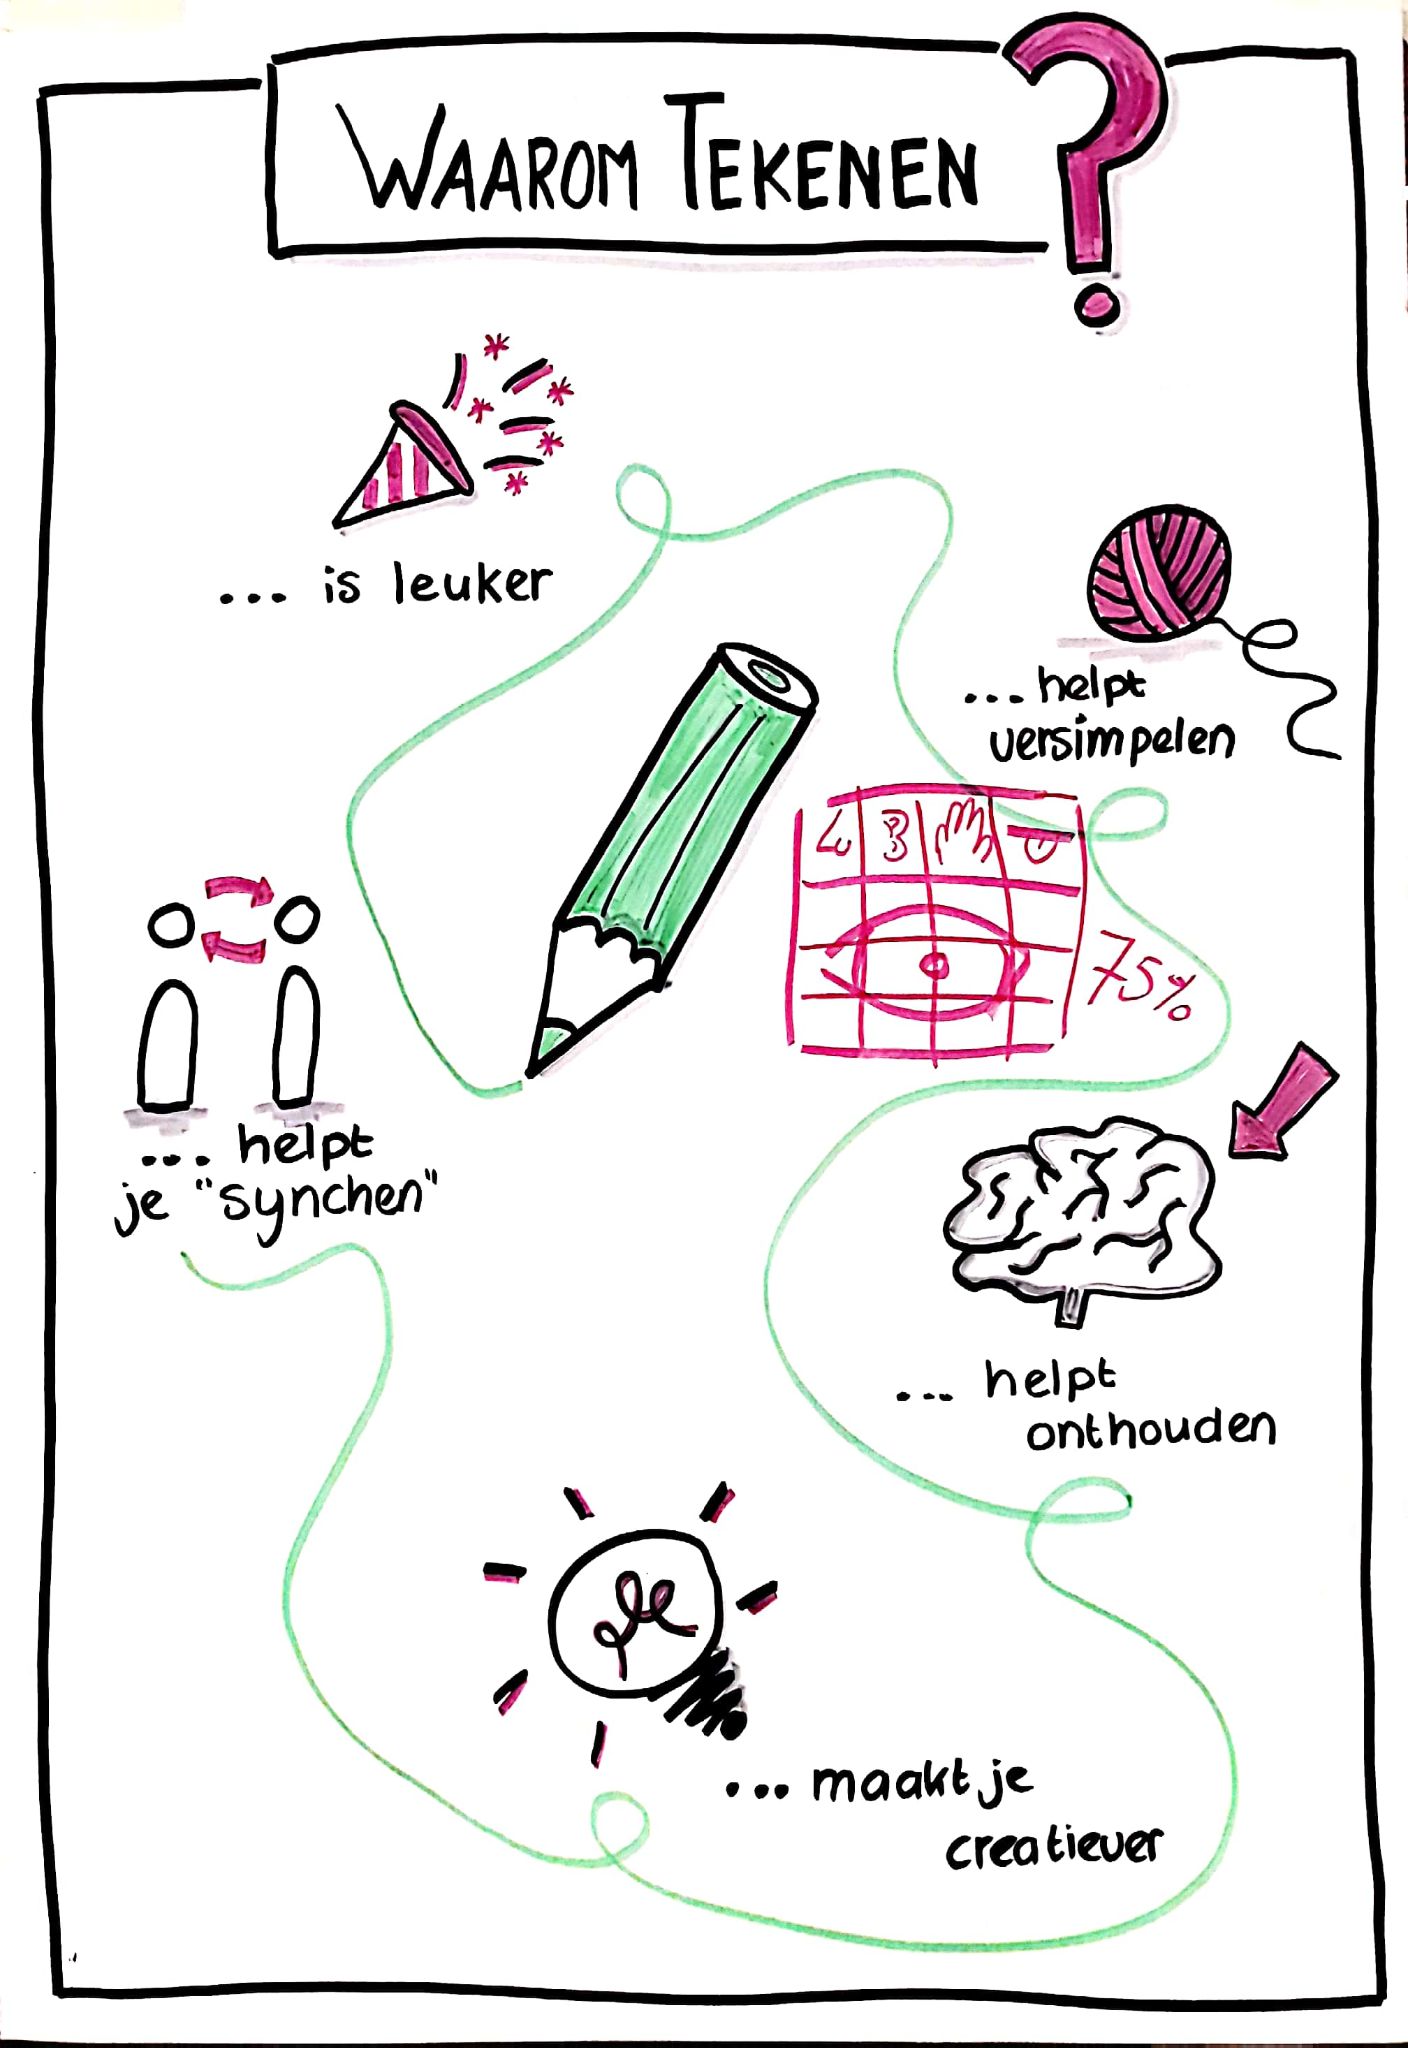 WAAROM TEKENEN?
... is leuker
... helpt
versimpelen
75%
... helpt
je "synchen"
... helpt
onthouden
... maakt je
creatiever